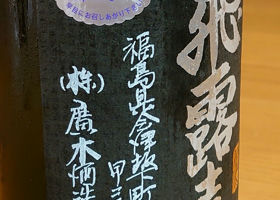 早目にお召しあがり下さい
飛露喜
福島県会津坂下町
甲三
(株)廣木酒造